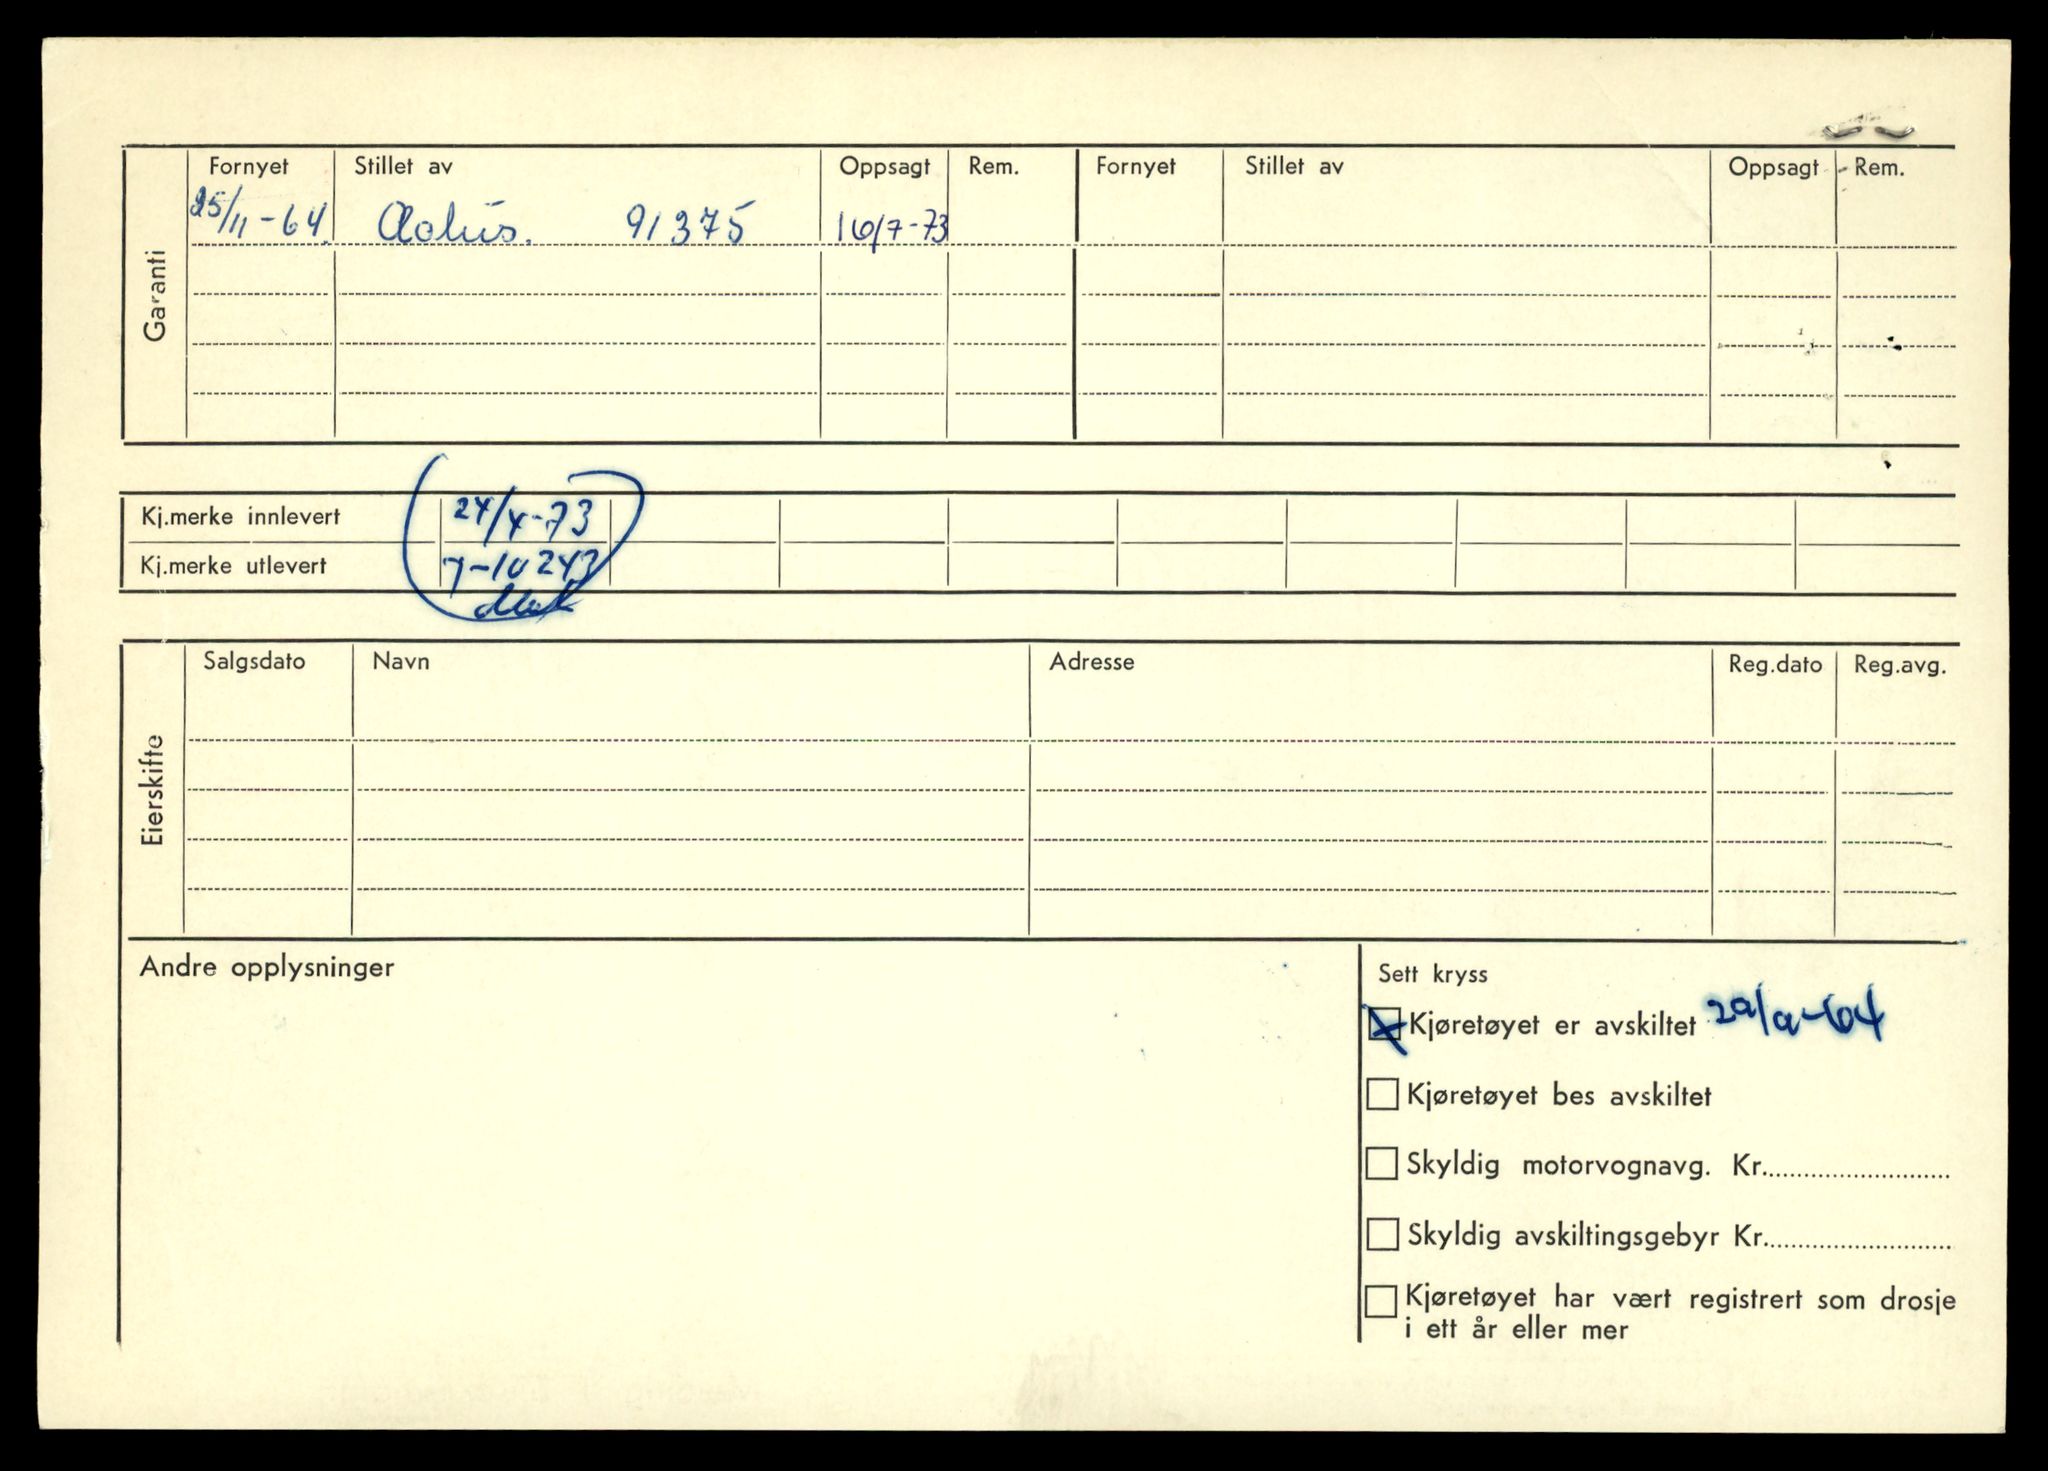 Garanti
Fornyet Stillet av Oppsagt Rem. Fornyet Stillet av Oppsagt Rem.
25/11-64. 91375 16/7-73
Kj.merke innlevert 24/4-73
Kj.merke utlevert 7-10243
Eierskifte
Salgsdato Navn Adresse Reg.dato Reg.avg.
Andre opplysninger
Sett kryss
Kjøretøyet er avskiltet
Kjøretøyet bes avskiltet
Skyldig motorvognavg. Kr.
Skyldig avskiltingsgebyr Kr.
Kjøretøyet har vært registrert som drosje
i ett år eller mer